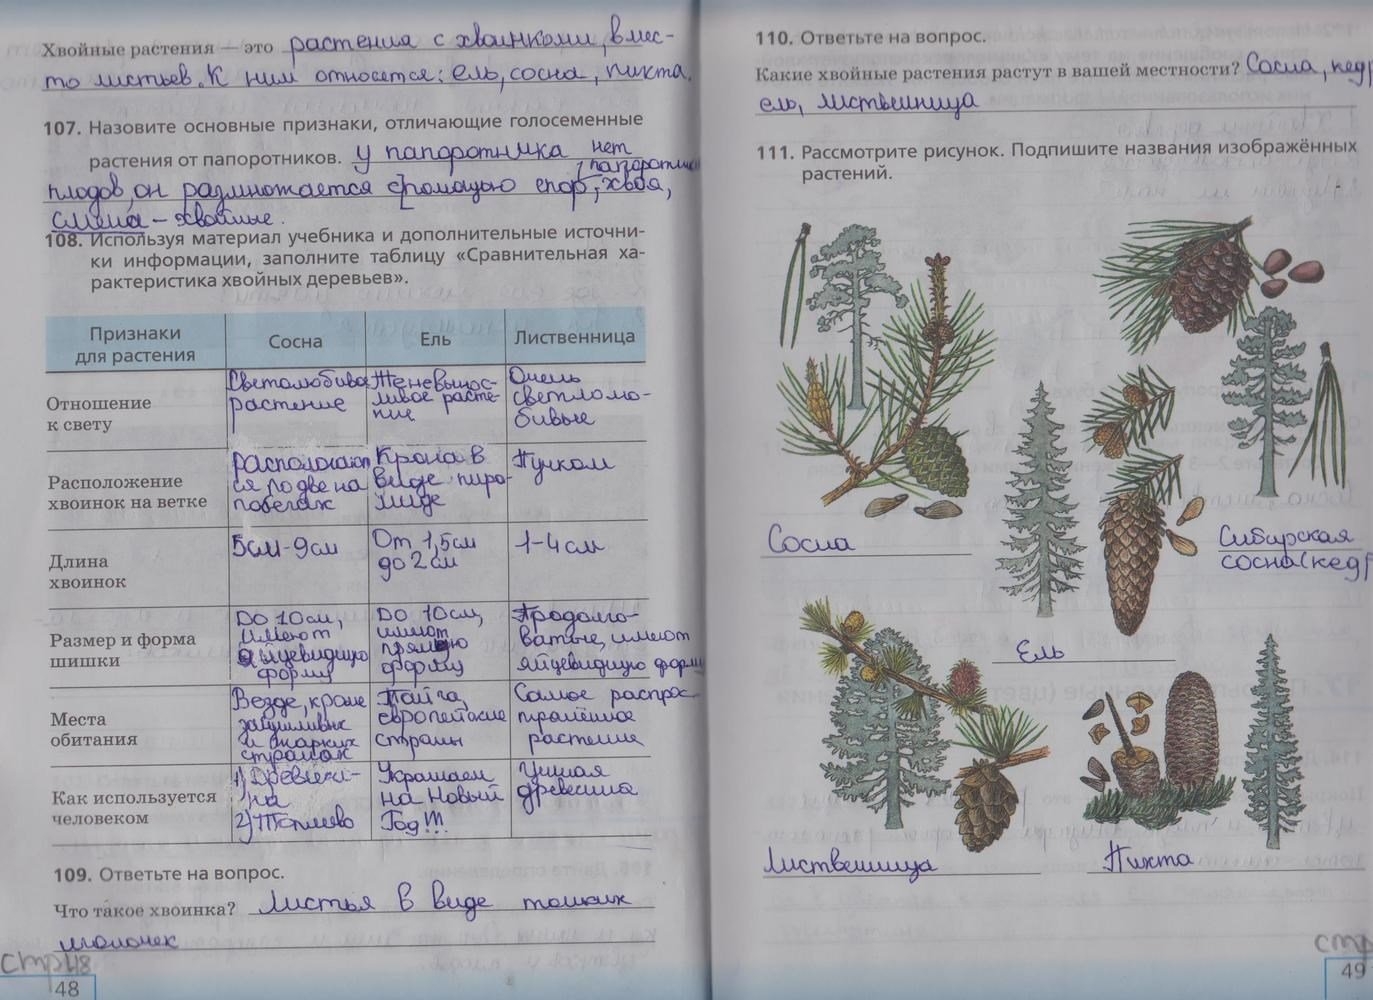 Хвойные растения — это растения с хвоинками, вмес-
то листьев. К ним относятся: ель, сосна, пихта.
107. Назовите основные признаки, отличающие голосеменные
растения от папоротников. у папоротника нет
плодов, он размножается с помощью спор, хвоя,
семена – хвойные.
108. Используя материал учебника и дополнительные источни-
ки информации, заполните таблицу «Сравнительная ха-
рактеристика хвойных деревьев».
Признаки
для растения
Сосна
Ель
Лиственница
Отношение
к свету
Светолюбивое
растение
Теневынос-
ливое расте-
ние
Очень
светлолю-
бивые
Расположение
хвоинок на ветке
располагают
ся по две на
побегах
Крона в
виде пира-
миде
Пучком
Длина
хвоинок
5см-9см
От 1,5см
до 2см
1-4см
Размер и форма
шишки
До 10см,
имеют
яйцевидную
форму
До 10см,
имеют
прямую
форму
Продолго-
ватые, имеют
яйцевидную форму
Места
обитания
Везде, кроме
засушливых
и жарких
странах
Тайга,
европейские
страны
Самое распрос-
транённое
растение
Как используется
человеком
1) Древеси-
на
2) Топливо
Украшаем
на Новый
Год!!!
Ценная
древесина
109. Ответьте на вопрос.
Что такое хвоинка? Листья в виде тонких
иголочек
стр 48
48
110. Ответьте на вопрос.
Какие хвойные растения растут в вашей местности? Сосна, кедр
ель, лиственница
111. Рассмотрите рисунок. Подпишите названия изображённых
растений.
Сосна
Сибирская
сосна (кедр
Ель
Лиственница
Пихта
стр
49